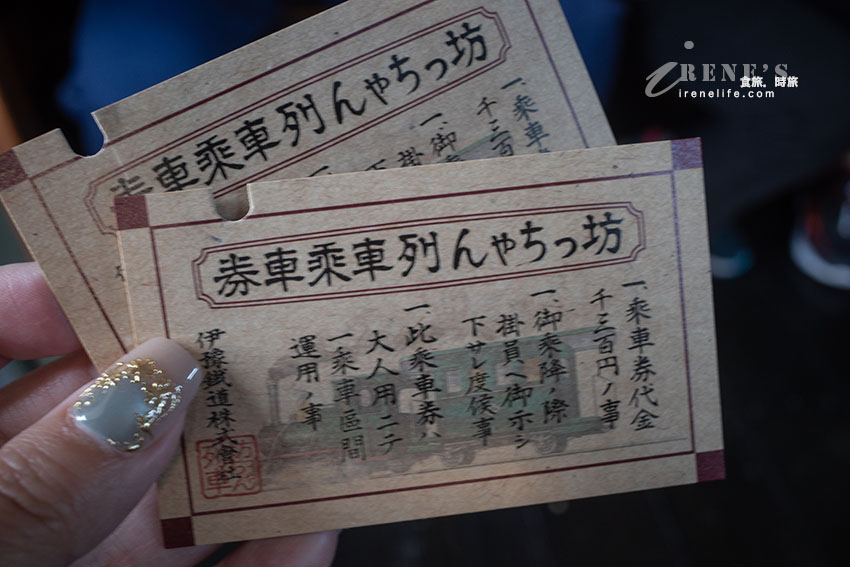 iRENE'S
食旅。時旅
irenelife.com
券車乗車列んゃちっ坊
一、乗車
千三百
一、御
下 掛
券車乗車列んゃちっ坊
一、乗車券代金
千三百円ノ事
一、御乗降ノ際
掛員へ御示シ
下サレ度候事
一、比乗車券ハ
大人用ニテ
一乗車区間
運用ノ事
伊豫鐵道株式會社
坊っちゃん列車